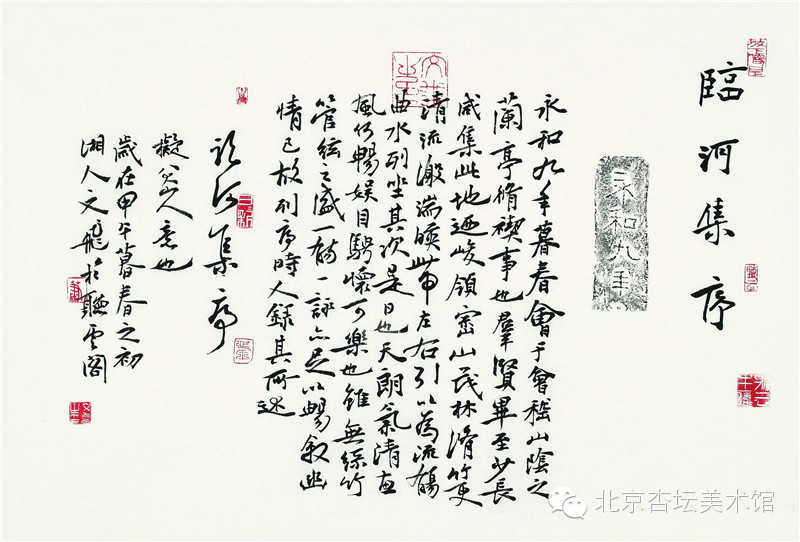 臨河集序
永和九年
永和九年暮春會于會稽山陰之
蘭亭脩禊事也羣賢畢至少長
咸集此地迺峻領崇山茂林脩竹更
清流激湍暎帶左右引以為流觴
曲水列坐其次是日也天朗氣清惠
風和暢娛目騁懷可樂也雖無絲竹
管絃之盛一觴一詠亦足以暢敘幽
情已故列序時人錄其所述
臨河集序
擬八大山人意也
歲在甲午暮春之初
湘人文飛於聽雲閣
北京杏坛美术馆